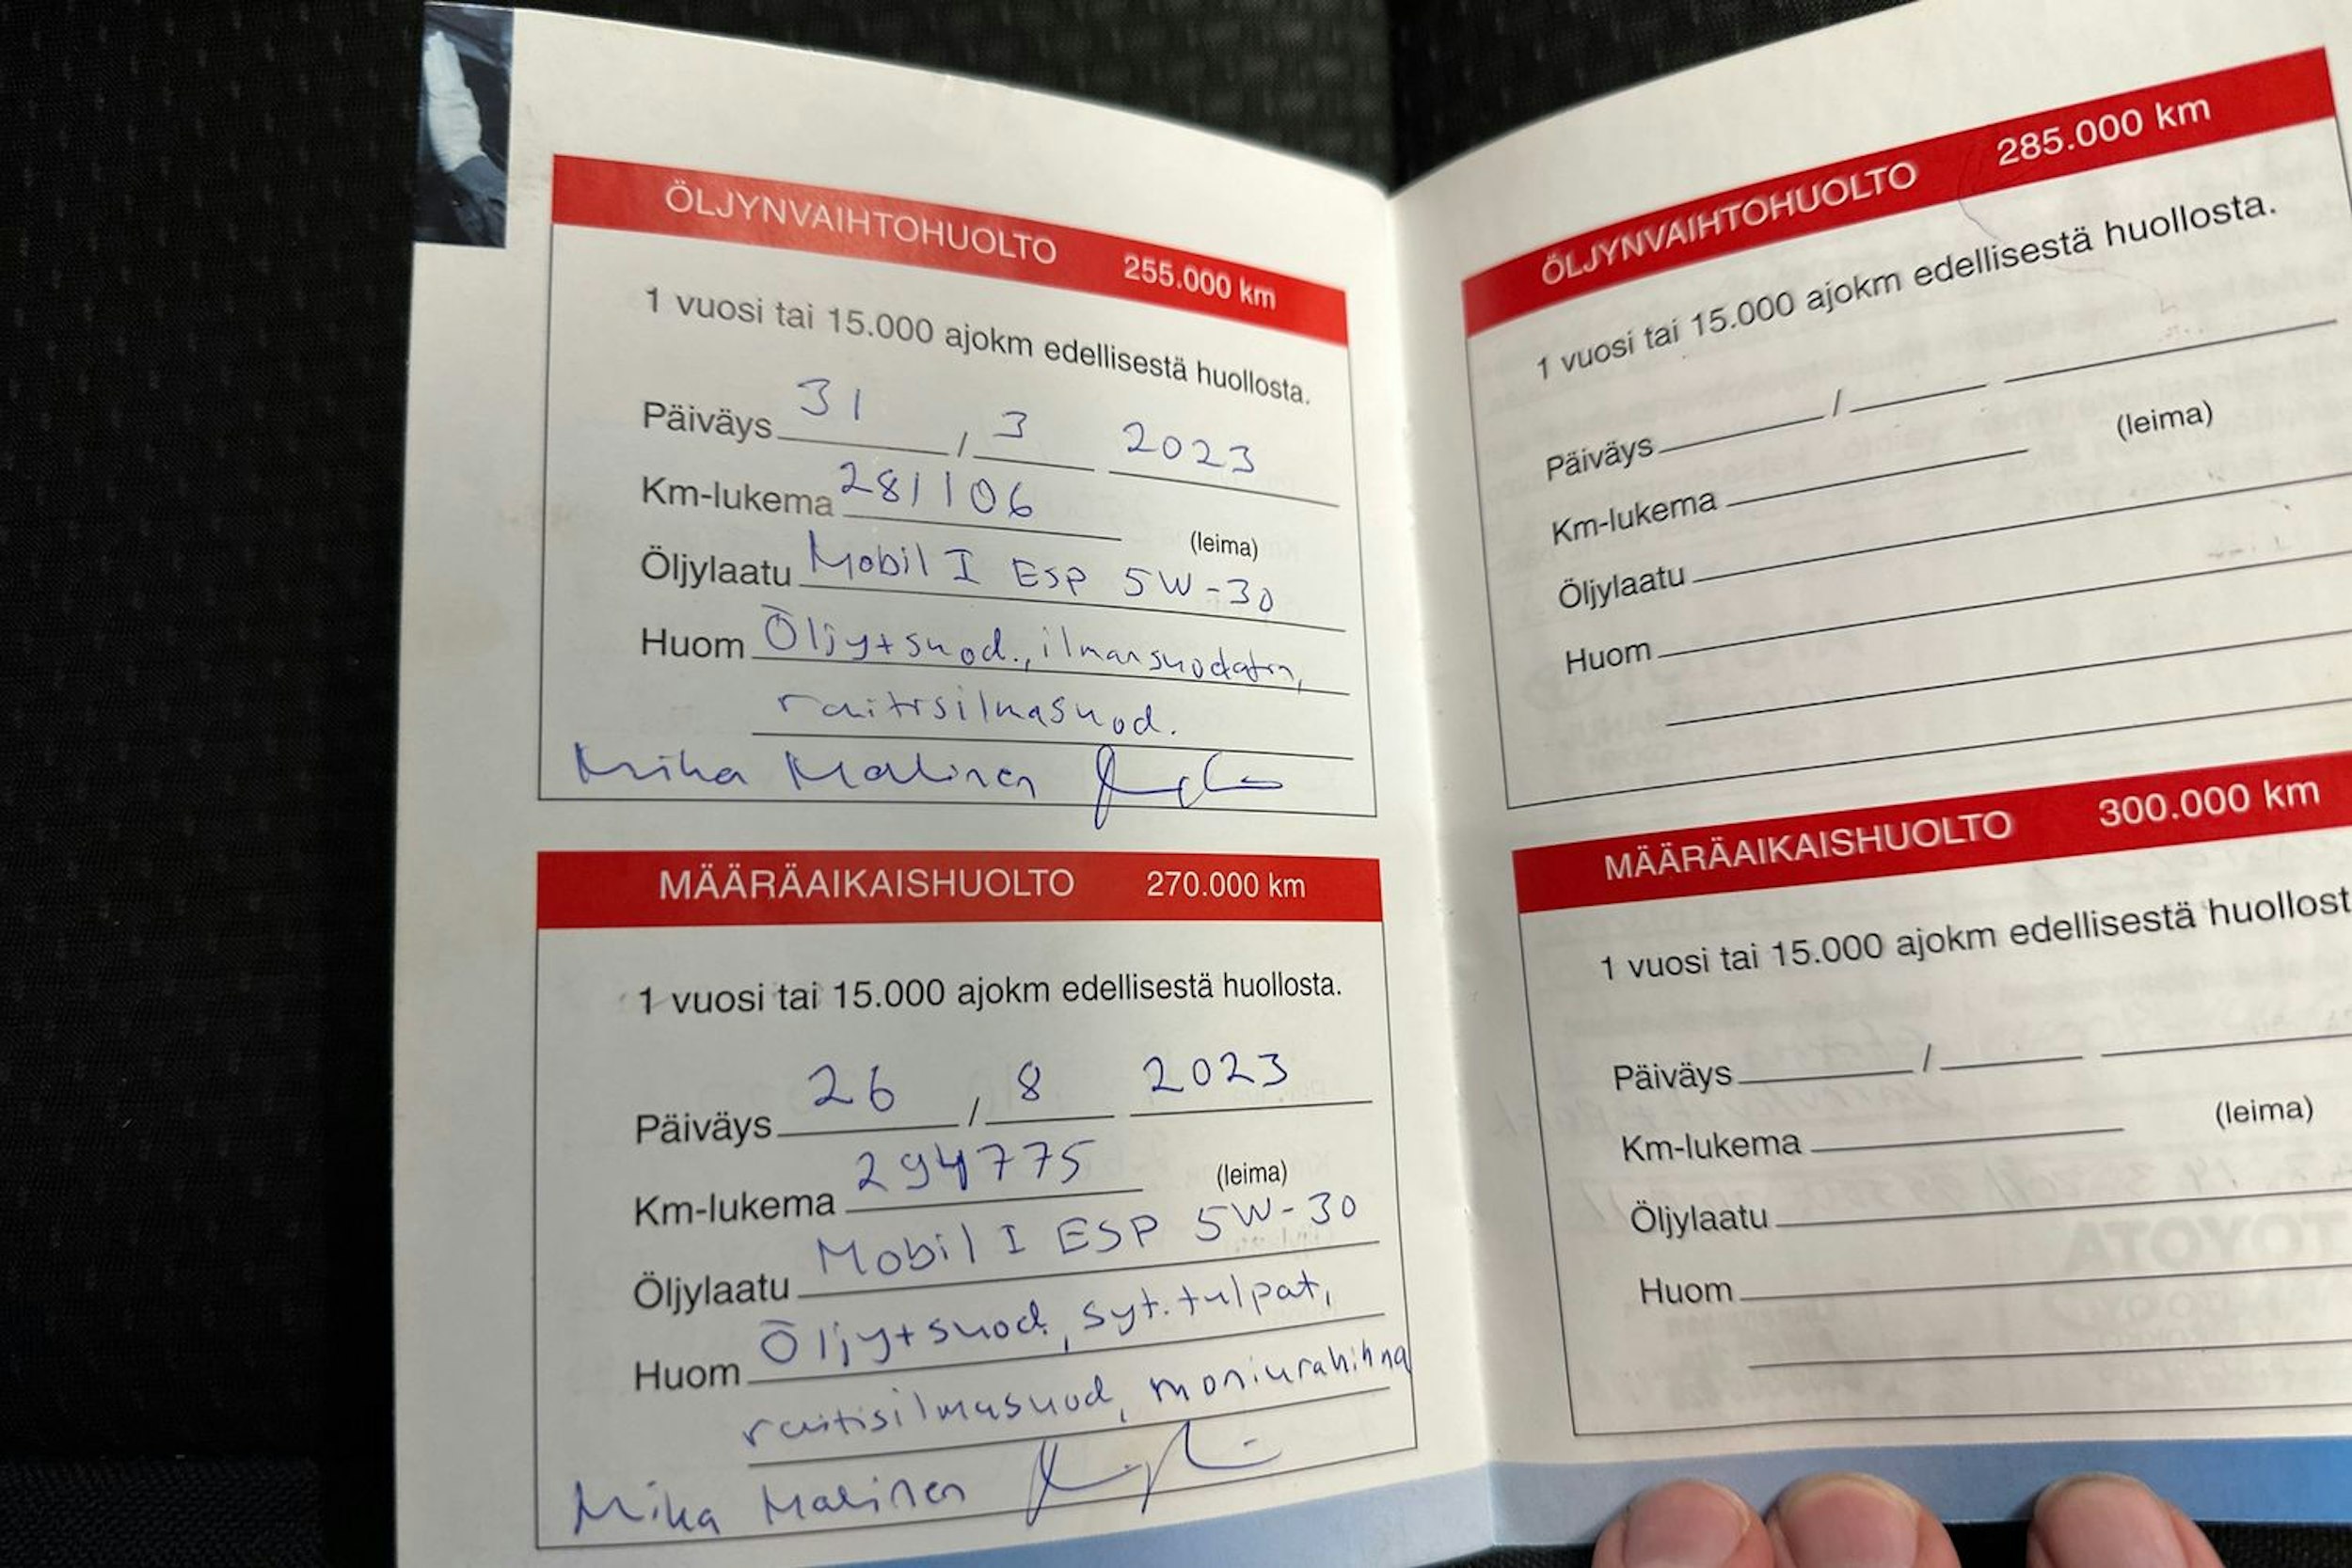 ÖLJYNVAIHTOHUOLTO 255.000 km
1 vuosi tai 15.000 ajokm edellisestä huollosta.
Päiväys 31 / 3 2023
Km-lukema 281106
(leima)
Öljylaatu Mobil I ESP 5W-30
Huom Öljy+suod., ilmansuodatin,
raitisilmasuod.
Mika Malinen
MÄÄRÄAIKAISHUOLTO 270.000 km
1 vuosi tai 15.000 ajokm edellisestä huollosta.
Päiväys 26 / 8 2023
Km-lukema 294775
(leima)
Öljylaatu Mobil I ESP 5W-30
Huom Öljy+suod, syt.tulpat,
raitisilmasuod, moniurahihna
Mika Malinen
ÖLJYNVAIHTOHUOLTO 285.000 km
1 vuosi tai 15.000 ajokm edellisestä huollosta.
Päiväys /
(leima)
Km-lukema
Öljylaatu
Huom
MÄÄRÄAIKAISHUOLTO 300.000 km
1 vuosi tai 15.000 ajokm edellisestä huollost
Päiväys /
(leima)
Km-lukema
Öljylaatu
Huom